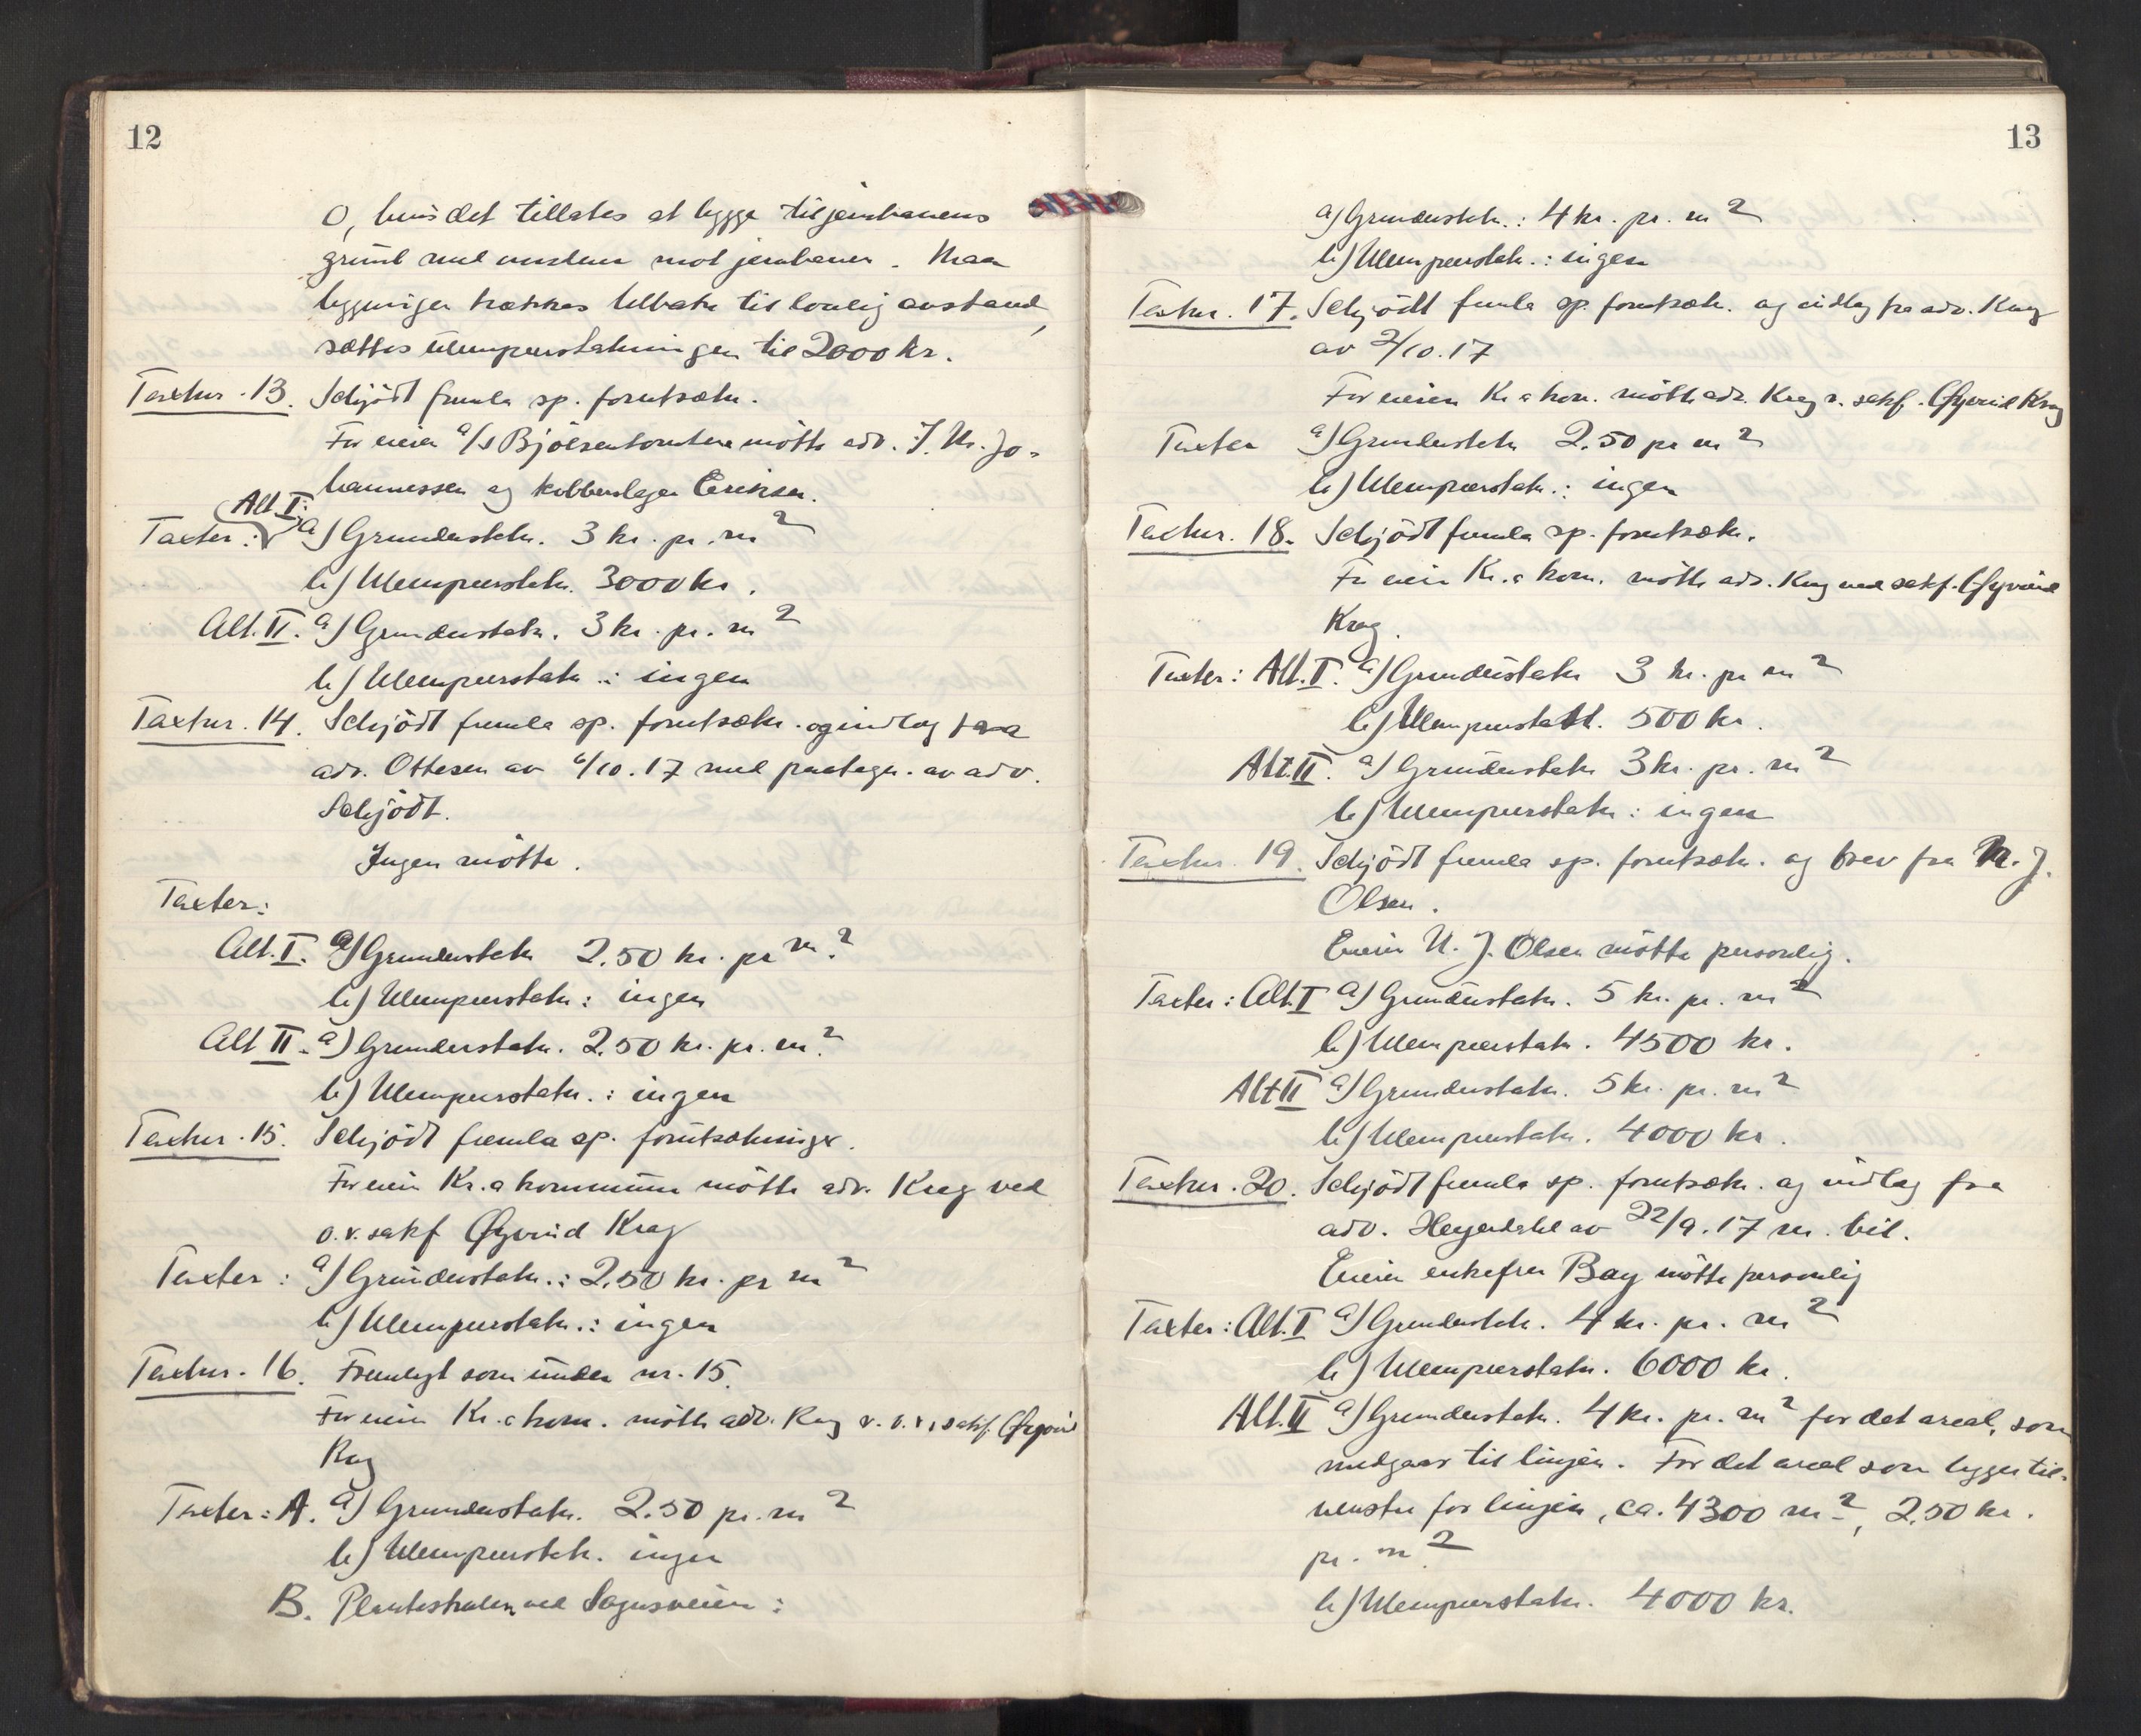 12
0, hvis det tillates at bygge til jernbanens
grund med vinduer mot jernbanen. Maa
bygninger trækkes tilbake til lovlig avstand,
sættes ulempeerstatningen til 2000 kr.
Taxtnr. 13. Schjödt fremla sp. forutsætn.
For eieren a/s Bjölsentomtene mötte adv. J. Kr. Jo-
hannessen og kobberslager Eriksen.
Alt I:
Taxter: a) Grunderstatn. 3 kr. pr. m2
b) Ulempeerstatn. 3000 kr.
Alt. II. a) Grunderstatn. 3 kr. pr. m2
b) Ulempeerstatn.: ingen
Taxtnr. 14. Schjödt fremla sp. forutsætn. og indlæg fra
adv. Ottesen av 6/10.17 med paategn. av adv.
Schjödt.
Ingen mötte.
Taxter:
Alt. I. a) Grunderstatn 2.50 kr. pr m2
b) Ulempeerstatn: ingen
Alt II. a) Grunderstatn. 2.50 kr. pr. m2
b) Ulempeerstatn.: ingen
Taxtnr. 15. Schjödt fremla sp. forutsætninger.
For eieren Kr.a kommune mötte adv. Krag ved
o.r.sakf Øyvind Krag
Taxter: a) Grunderstatn.: 2.50 kr. pr m2
b) Ulempeerstatn.: ingen
Taxtnr. 16. Fremlagt som under nr. 15.
For eieren Kr.a kom. mötte adv. Krag v. o.r.sakf. Øyvind
Krag
Taxter: A. a) Grunderstatn. 2.50 pr. m2
b) Ulempeerstatn. ingen
B. Planteskolen ved Sognsveien:
13
a) Grunderstatn.: 4 kr. pr. m2
b) Ulempeerstatn.: ingen
Taxtnr. 17. Schjödt fremla sp. forutsætn. og indlæg fra adv. Krag
av 2/10.17
For eieren Kr.a kom. mötte adv. Krag v. sakf. Øyvind Krag
Taxter a) Grunderstatn 2.50 pr m2
b) Ulempeerstatn.: ingen
Taxtnr. 18. Schjödt fremla sp. forutsætn.
For eieren Kr.a kom. mötte adv. Krag ved sakf. Øyvind
Krag.
Taxter: Alt. I. a) Grunderstatn 3 kr. pr m2
b) Ulempeerstatn. 500 kr.
Alt. II. a) Grunderstatn 3 kr. pr. m2
b) Ulempeerstatn: ingen
Taxtnr. 19. Schjödt fremla sp. forutsætn. og brev fra N. J.
Olsen.
Eieren N. J. Olsen mötte personlig.
Taxter: Alt. I a) Grunderstatn. 5 kr. pr. m2
b) Ulempeerstatn. 4500 kr.
Alt II a) Grunderstatn. 5 kr. pr. m2
b) Ulempeerstatn. 4000 kr.
Taxtnr. 20. Schjödt fremla sp. forutsætn. og indlæg fra
adv. Heyerdahl av 22/9.17 m. bil.
Eieren enkefru Bay mötte personlig
Taxter: Alt. I a) Grunderstatn. 4 kr. pr. m2
b) Ulempeerstatn. 6000 kr.
Alt. II a) Grunderstatn. 4 kr. pr. m2 for det areal, som
medgaar til linjen. For det areal som ligger til-
venstre for linjen, ca. 4300 m2, 2.50 kr.
pr. m2
b) Ulempeerstatn. 4000 kr.